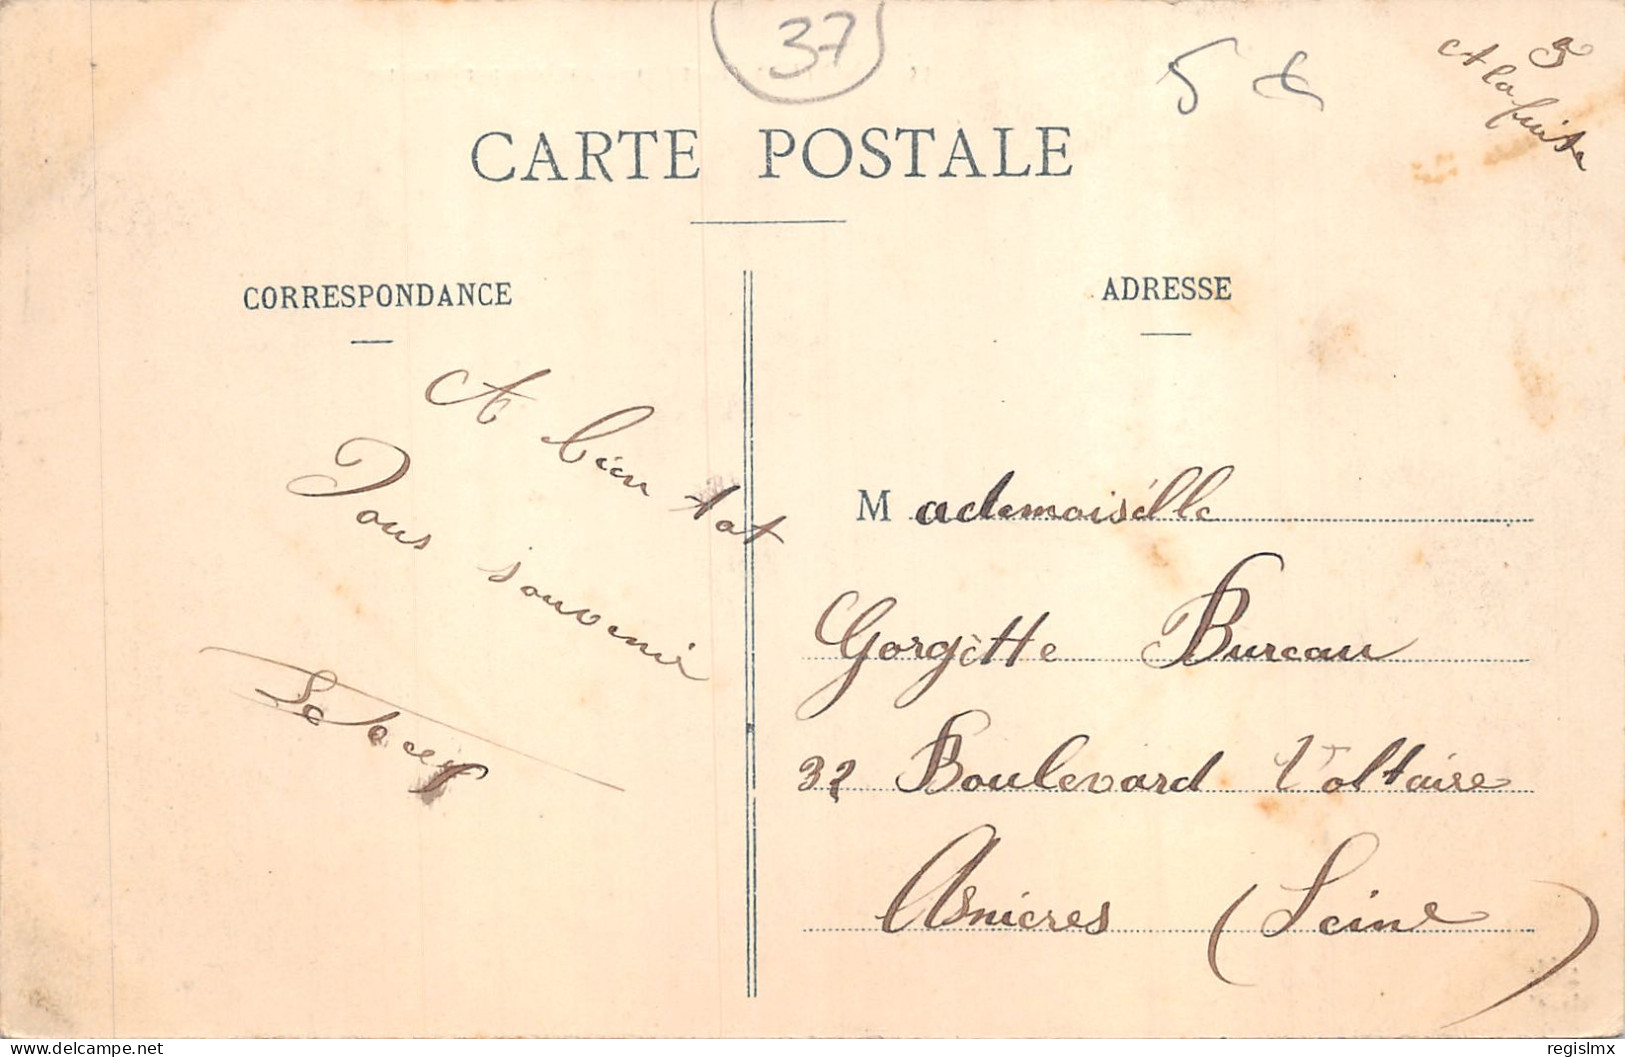 37
5 €
3
A la suite
CARTE POSTALE
CORRESPONDANCE
ADRESSE
A bien tot
Doux souvenir
Mademoisélle
Gorgètte Bureau
32 Boulevard Voltaire
Asnieres (Seine)
www.delcampe.net
regislmx